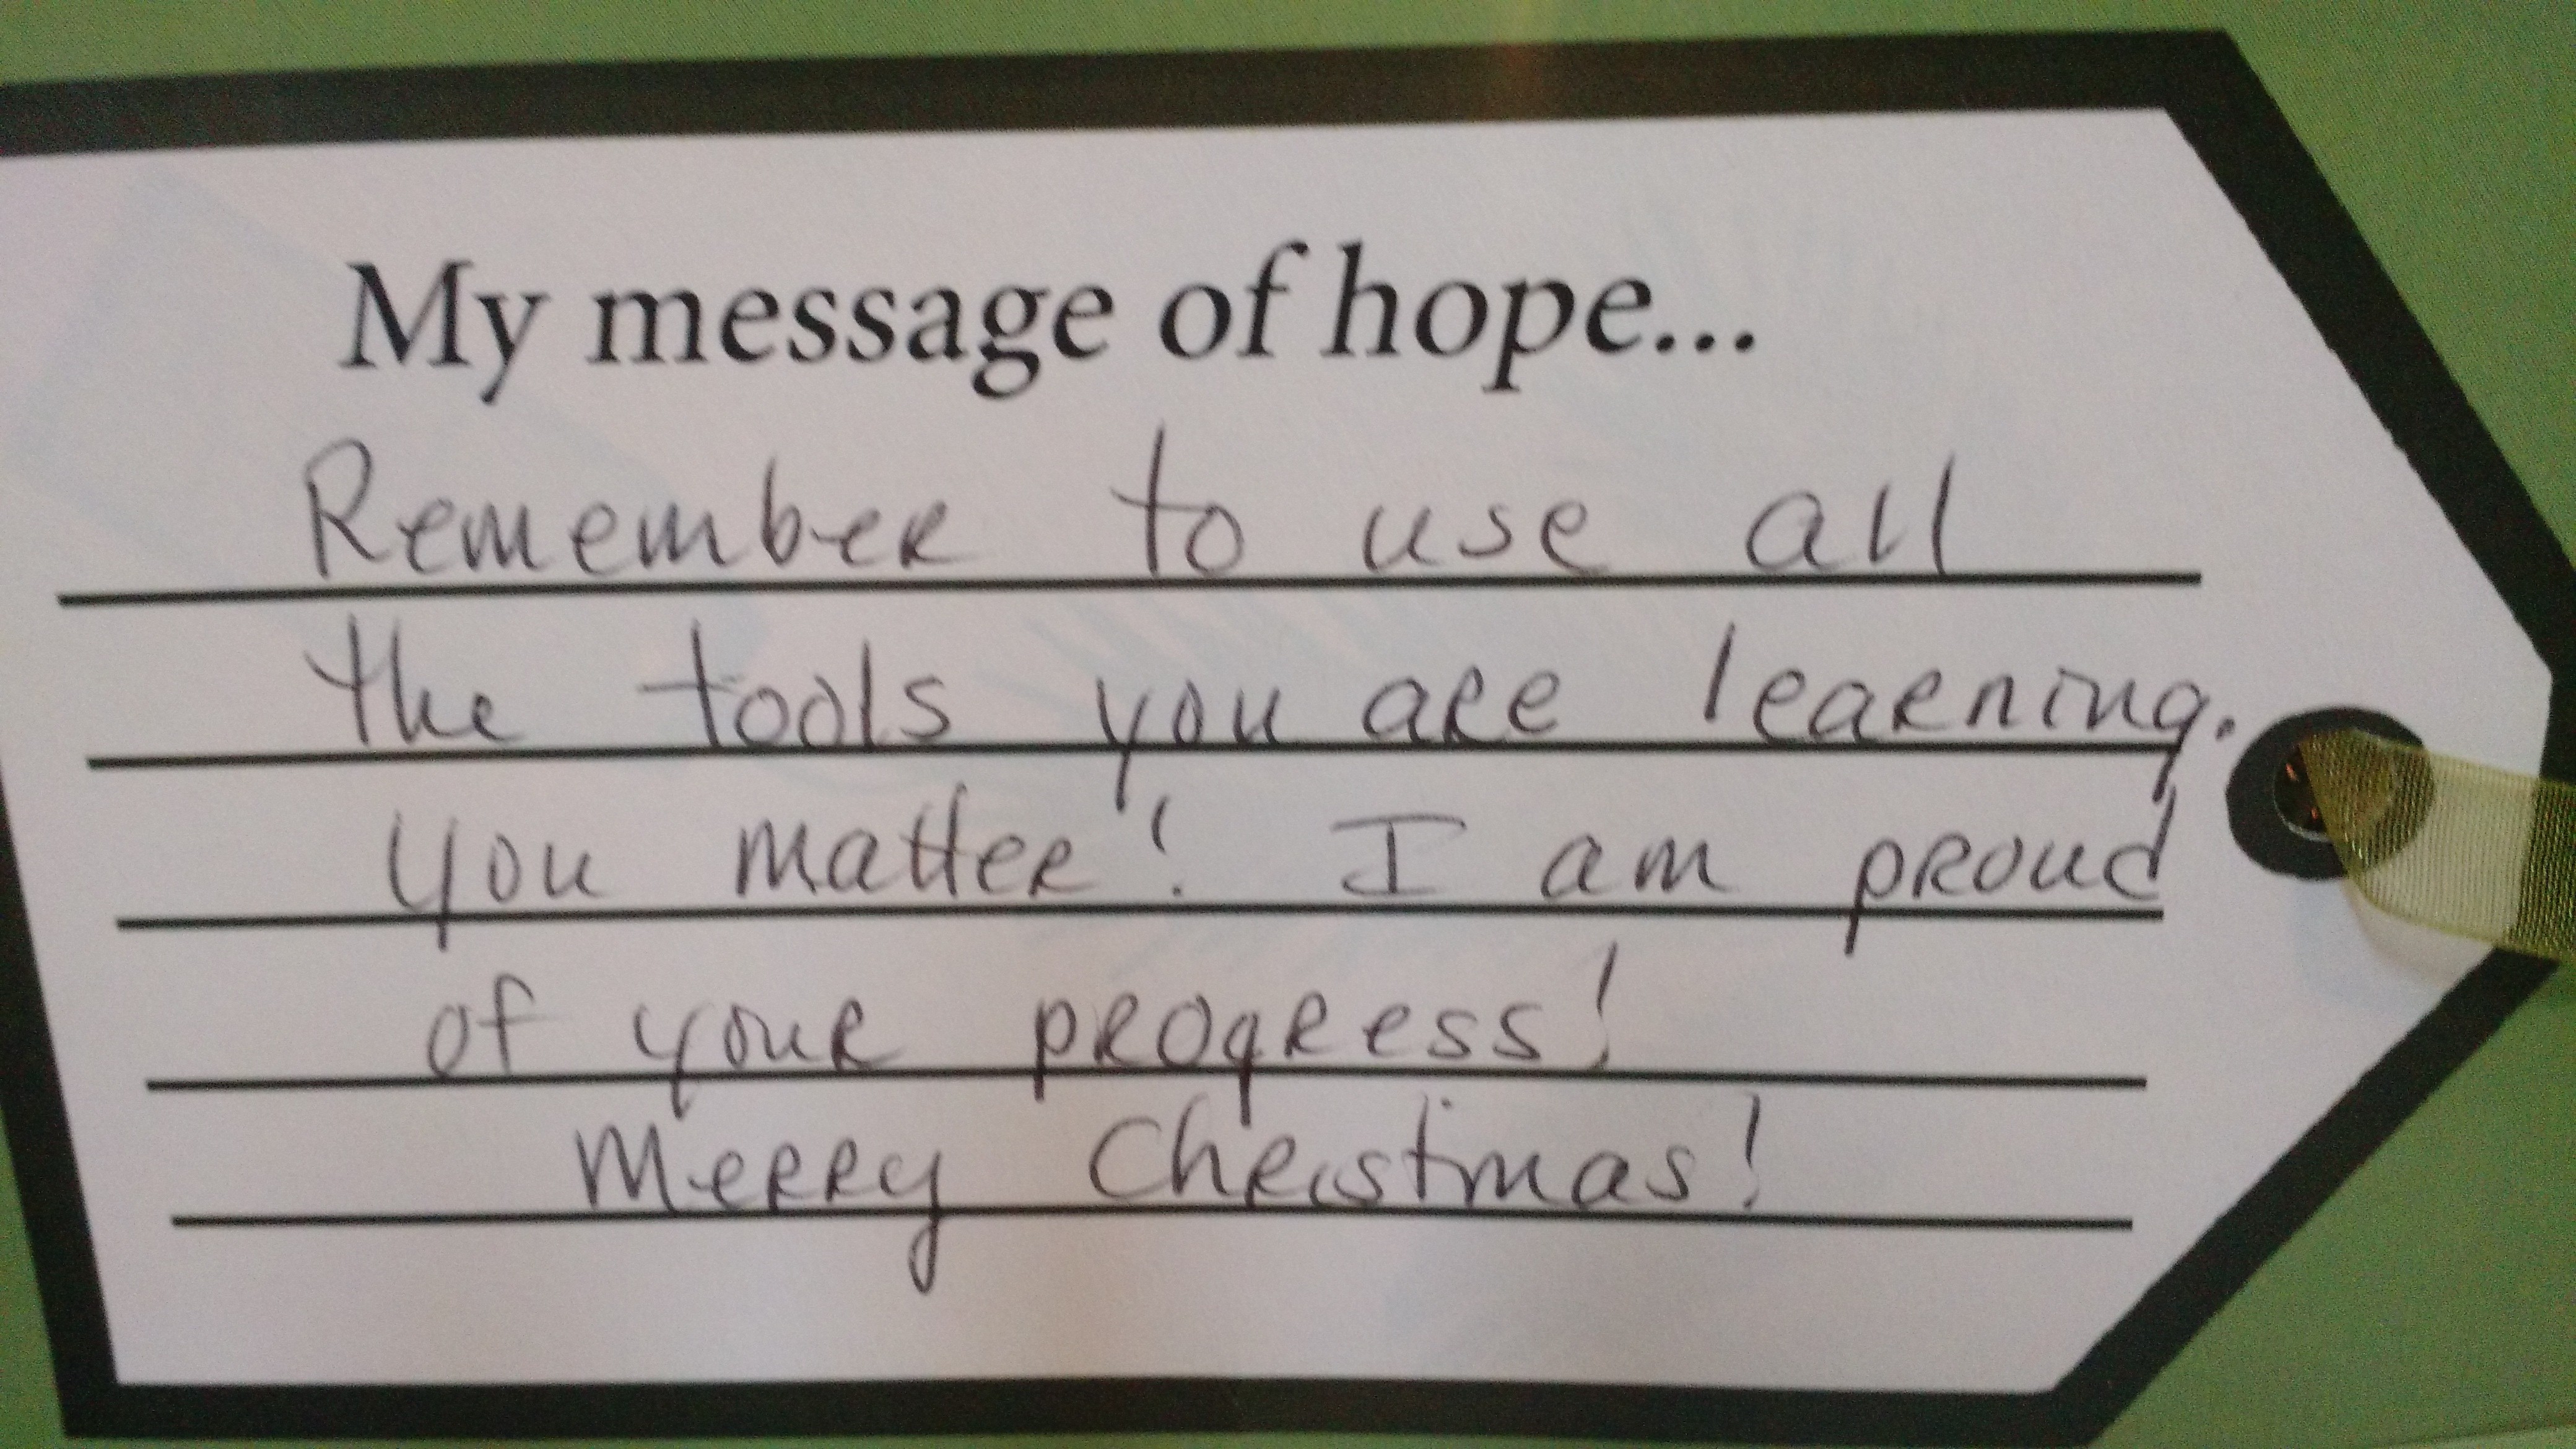 My message of hope...
Remember to use all
the tools you are learning.
you matter! I am proud
of your progress!
Merry Christmas!